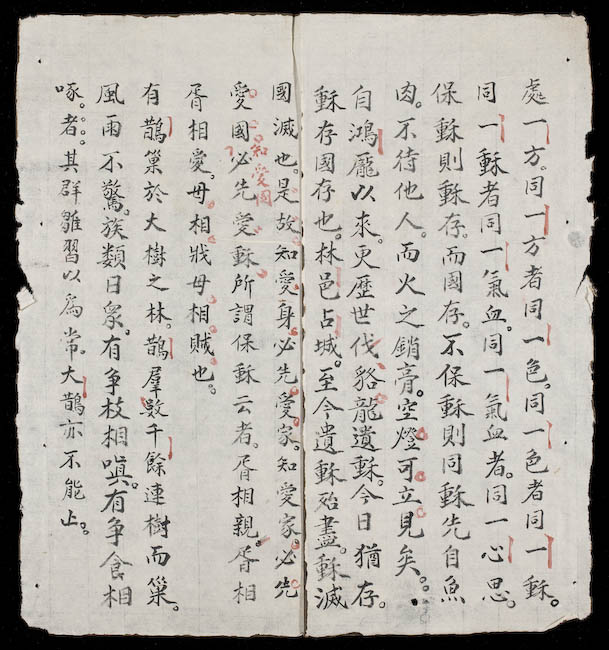 處一方。同一方者同一色。同一色者同一穌。
同一穌者同一氣血。同一氣血者。同一心思。
保穌則穌存。而國存。不保穌則同穌先自魚
肉。不待他人。而火之銷膏。空燈可立見矣。
自鴻龐以來。更歷世代。貉龍遺穌。今日猶存。
穌存國存也。林邑占城。至今遺穌殆盡。穌滅
國滅也。是故知愛身。必先愛家。知愛家。必先
愛國。知愛國必先愛穌所謂保穌云者。胥相親。胥相
胥相愛。毋相戕毋相賊也。
有鵲巢於大樹之林。鵲羣數千餘連樹而巢。
風雨不驚。族類日衆。有争枝相嗔。有争食相
啄。者。其群雛習以爲常。大鵲亦不能止。